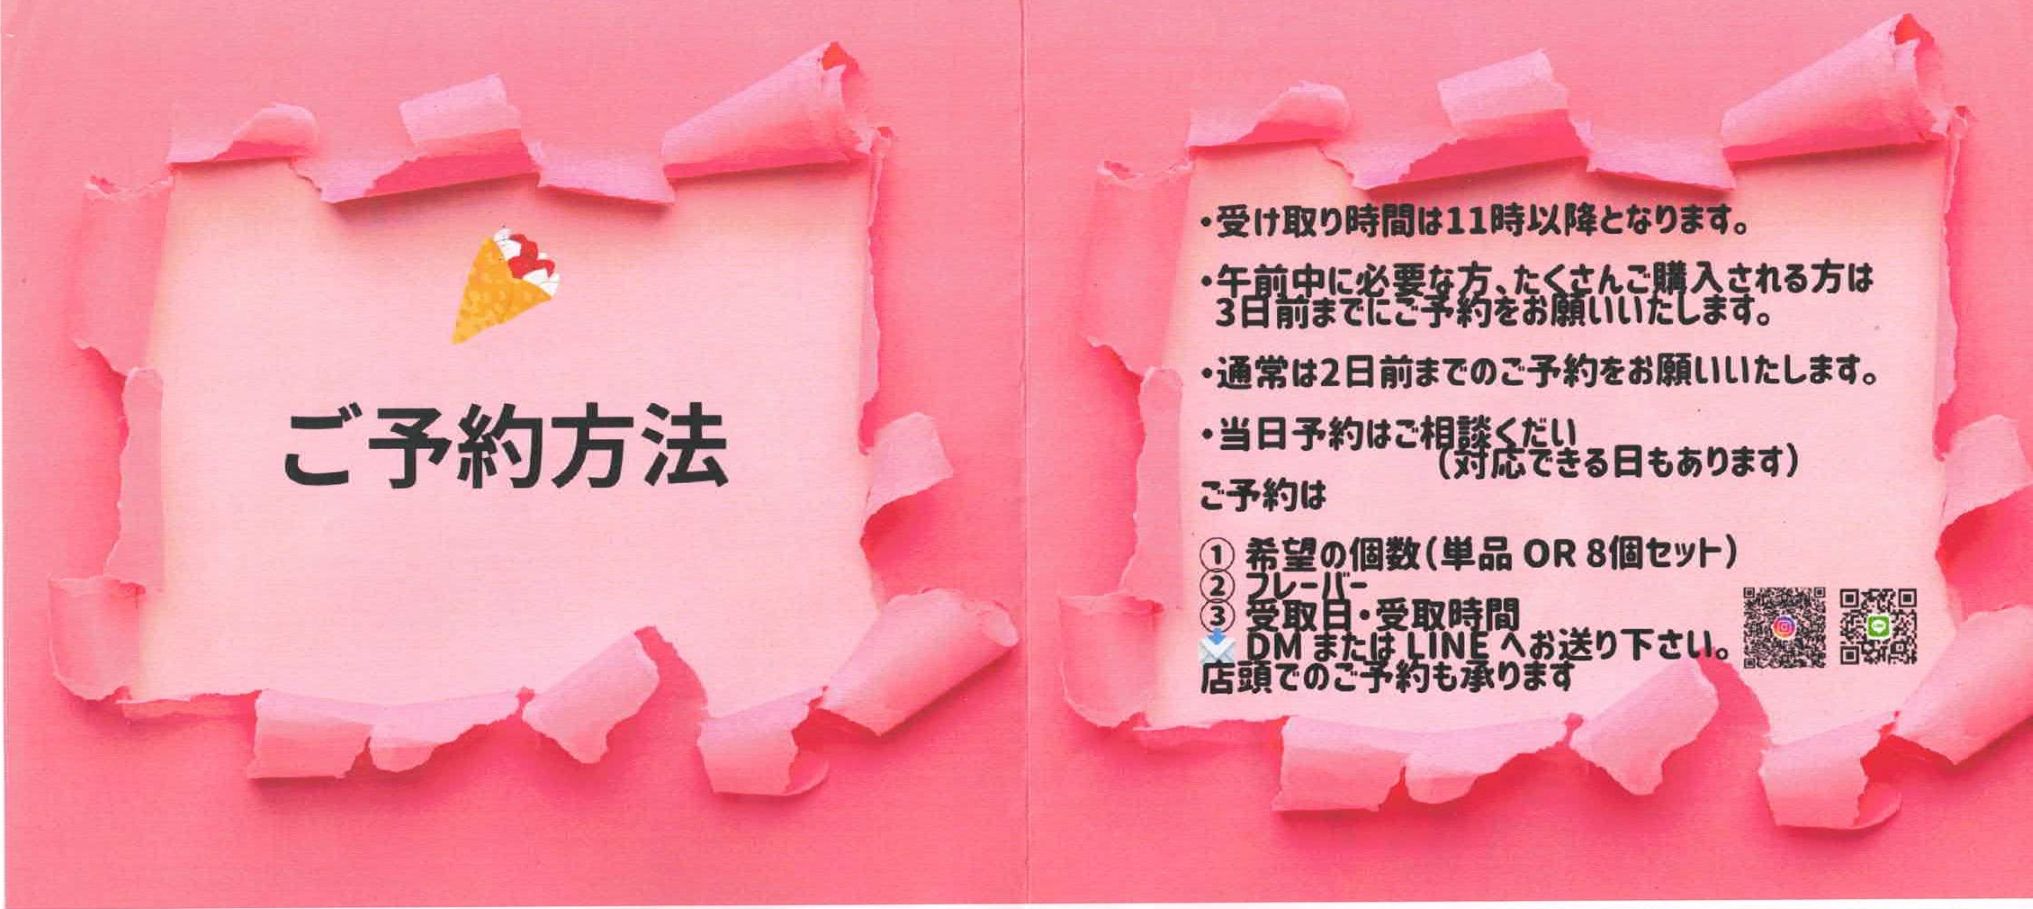 ご予約方法
・受け取り時間は11時以降となります。
・午前中に必要な方、たくさんご購入される方は
3日前までにご予約をお願いいたします。
・通常は2日前までのご予約をお願いいたします。
・当日予約はご相談くだい
(対応できる日もあります)
ご予約は
① 希望の個数(単品 OR 8個セット)
② フレーバー
③ 受取日・受取時間
📩 DM または LINE へお送り下さい。
店頭でのご予約も承ります